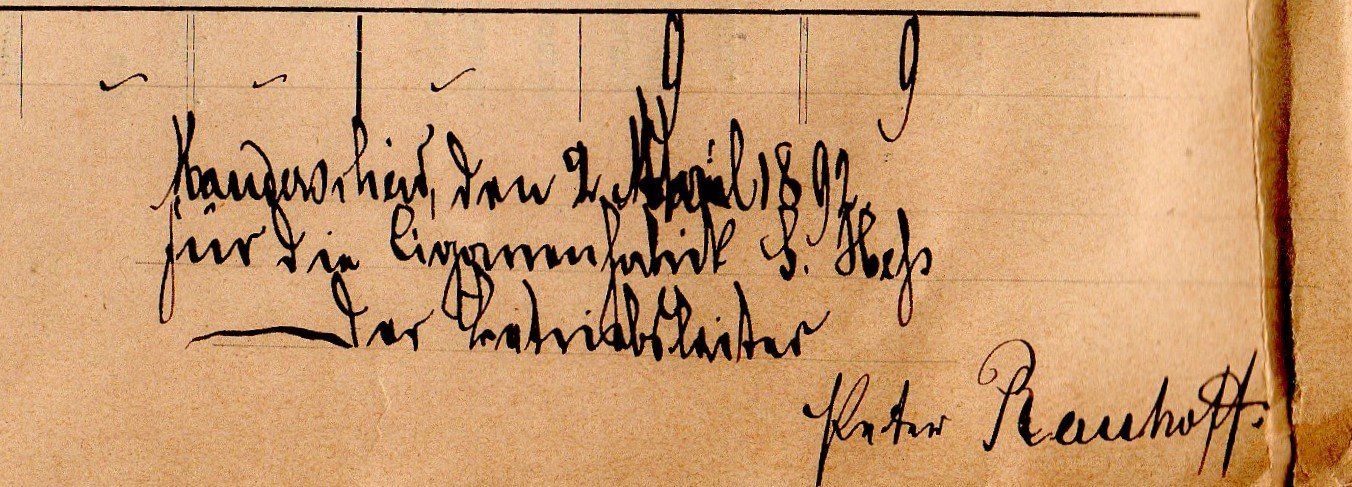 9 9
den 2. April 1892.
für die Cigarrenfabrik H. Hess
Der Betriebsleiter
Peter Rauhoff.